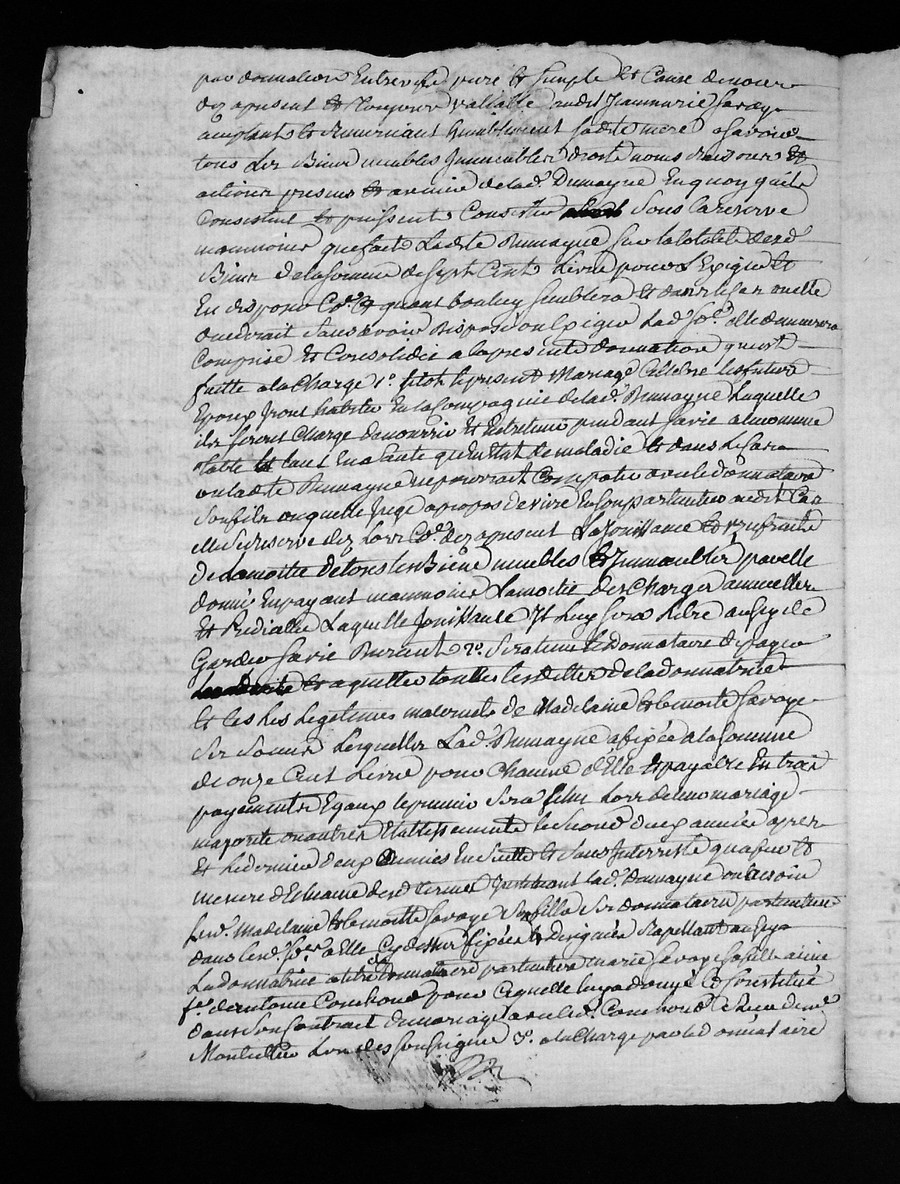 par donnation Entrevifs pure et simple et Cause de nôces
dez apresent et toujours valiable audit Jeanmarie Savaye
aceptants et remerciant humblement ladite mere a Savoir
tous Les Biens meubles Jmmeubles droits noms raisons et
actions presens et avenir de lad. Dumayne En quoy quils
Consistent et puissent Consister Sous la reserve
neanmoins que fait Ladite Dumayne Sur la totalité desd
Biens de la Somme de Sept Cent Livre pour L'Exiger et
En disposer Co. Et quant bon luy Semblera et dans le Cas ou elle
decedrait Sans avoir dispose ou Exiger Lad. So.e elle demeurera
Comprise et Consolidée a la presente donnation qui est
faitte a la Charge 1.o sitot le present Mariage Celebré les futurs
Epoux Jront habiter En la Compagnie de lad. Dumayne Laquelle
ils Seront Chargé de nourrir et Entretenir pendant Sa vie a leur commune
table et tant En Santé qu'En Etat de maladie et dans le Cas
ou ladite Dumayne ne pourrait Compatir avec le donnataire
Son fils ou quelle Juge apropos de vivre En Son particulier audit Cas
elle Se reserve dez Lors Co. dez apresent La Jouissance et uzufruits
de la moitié de tous les Biens meubles et Jmmeubles par elle
donné En payant neanmoins La moitié des Charges annuelles
et Predialles Laquelle Jouissance Jl Luy Sera Libre aussy de
Garder Sa vie Durant 2.o Sera tenu le donnataire de payer
et aquitter toutes les dettes de la donnatrice
et les Les Legitimes maternels de Madelaine et Benoite Savaye
Ses Soeurs Lesquelles Lad. Dumayne a fixée a la Somme
de onze Cent Livre pour Chacune d'Elle payable En trois
payements Egaux le premier Sera Echu Lors de leur mariage
majorité ou autres Etablissements le Second deux années apres
et Le dernier deux années En Suitte et Sans Jnterrets qua fur et
mesure d'Echeance desd termes Jnstituant lad. Dumayne
Madelaine et Benoitte Savaye Ses filles Ses donnataires particulieres
dans lesd. So.es a Elle Cy dessus fixée et Designée Rapellant aussy
La donnatrice a titre donnataire particuliere marie Savaye Sa fille ainé
f.e d'antoine Couchoud pour Ce quelle luy a donné et Constitué
dans Son Contrat de mariage avec led. Couchoud Recu de m.e
Lun des Soussignés 3.o a la Charge par le donnataire